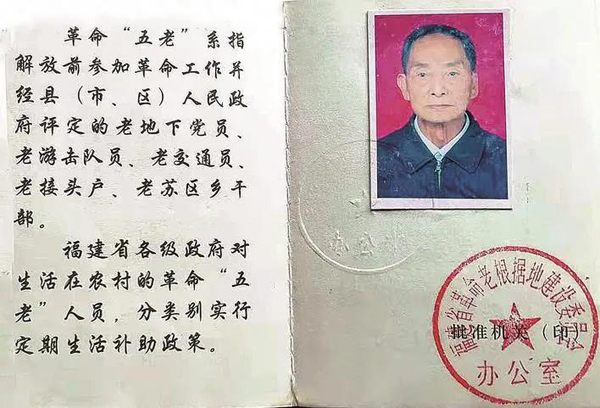 革命“五老”系指
解放前参加革命工作并
经县（市、区）人民政
府评定的老地下党员、
老游击队员、老交通员、
老接头户、老苏区乡干
部。
福建省各级政府对
生活在农村的革命“五
老”人员，分类别实行
定期生活补助政策。
办公
福建省革命老根据地建设委员会
批准机关（印）
办公室